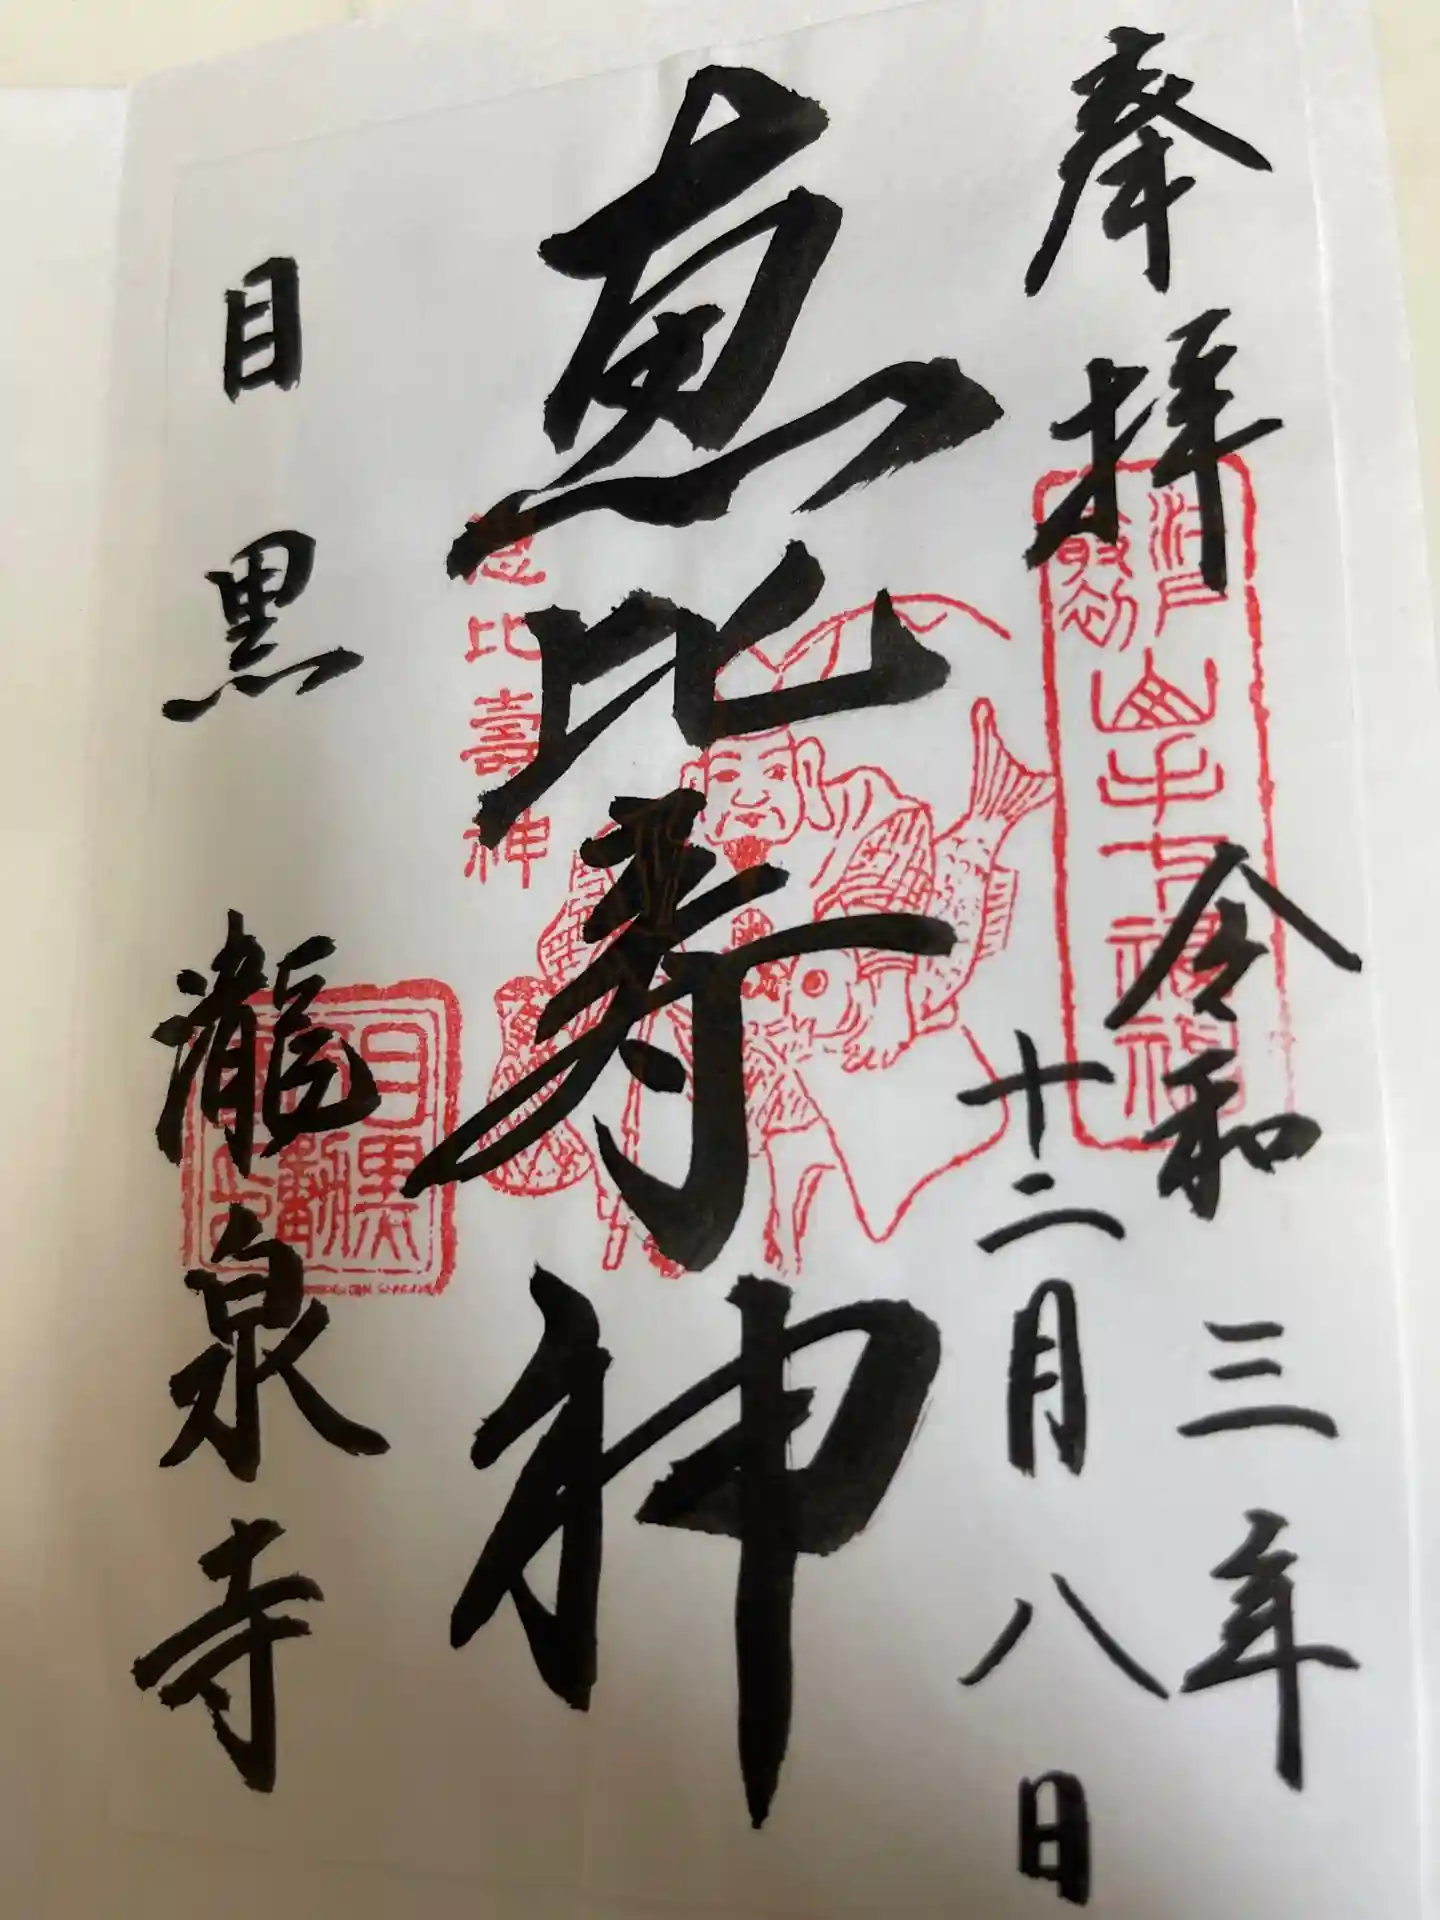 奉拝
江戸
最初
山手七福神
令和三年
十二月八日
恵比寿神
恵比壽神
目黒瀧泉寺
目黒